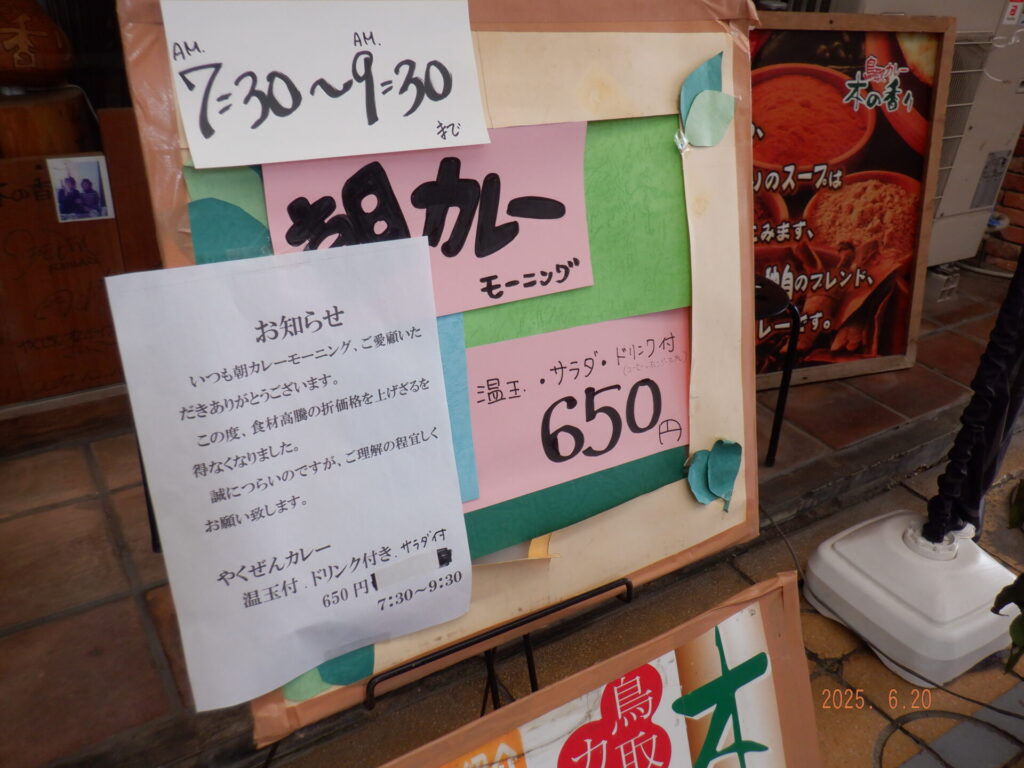 AM. AM.
7:30～9:30
まで
朝カレー
モーニング
温玉・サラダ・ドリンク付
650円
お知らせ
いつも朝カレーモーニング、ご愛願いた
だきありがとうございます。
この度、食材高騰の折価格を上げさるを
得なくなりました。
誠につらいのですが、ご理解の程宜しく
お願い致します。
やくぜんカレー
温玉付．ドリンク付き．サラダ付
650円
7:30～9:30
鳥取カレー
木の香り
のスープは
みます、
独自のブレンド、
レーです。
鳥取
カ
木
香
2025. 6.20